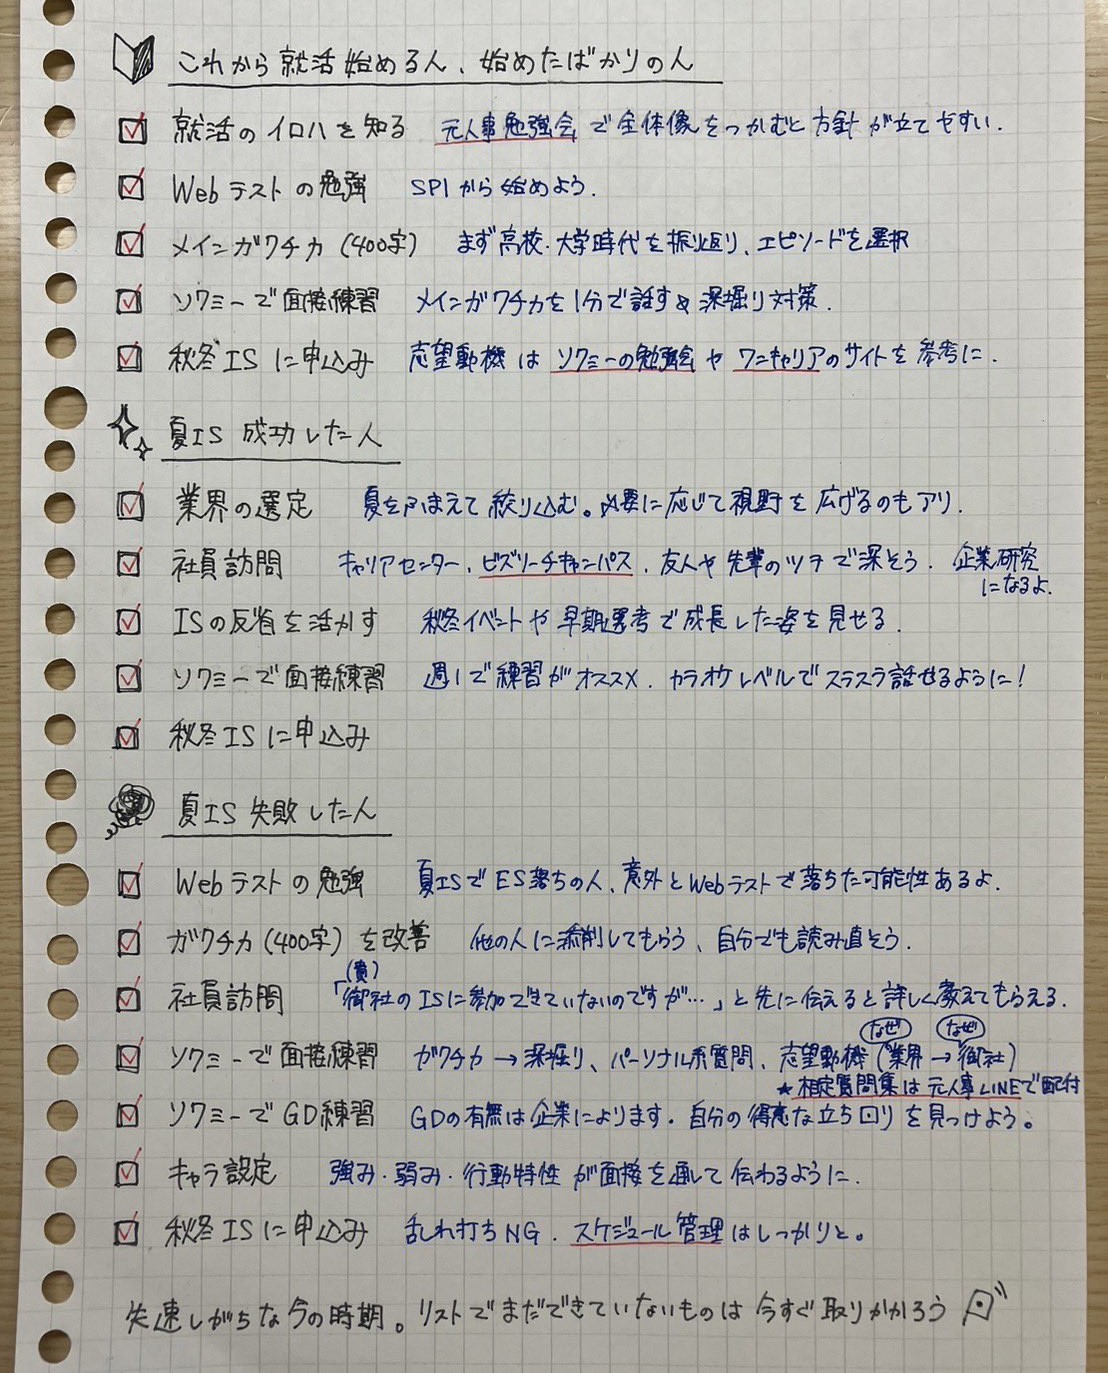 これから就活始める人、始めたばかりの人
就活のイロハを知る 元人事勉強会で全体像をつかむと方針が立てやすい.
Webテストの勉強 SPIから始めよう.
メインガクチカ(400字) まず高校・大学時代を振り返り、エピソードを選択
ソクミーで面接練習 メインガクチカを1分で話す&深堀り対策.
秋冬ISに申込み 志望動機はソクミーの勉強会やワンキャリアのサイトを参考に.
夏IS成功した人
業界の選定 夏をふまえて絞り込む。必要に応じて視野を広げるのもアリ.
社員訪問 キャリアセンター、ビズリーチキャンパス、友人や先輩のツテで探そう. 企業研究
になるよ.
ISの反省を活かす 秋冬イベントや早期選考で成長した姿を見せる.
ソクミーで面接練習 週1で練習がオススメ. カラオケレベルでスラスラ話せるように!
秋冬ISに申込み
夏IS失敗した人
Webテストの勉強 夏ISでES落ちの人、意外とWebテストで落ちた可能性あるよ.
ガクチカ(400字)を改善 他の人に添削してもらう、自分でも読み直そう.
(貴)
社員訪問 「御社のISに参加できていないのですが…」と先に伝えると詳しく教えてもらえる.
なぜ なぜ
ソクミーで面接練習 ガクチカ→深堀り、パーソナル系質問、志望動機(業界→御社)
★想定質問集は元人事LINEで配付
ソクミーでGD練習 GDの有無は企業によります. 自分の得意な立ち回りを見つけよう。
キャラ設定 強み・弱み・行動特性が面接を通して伝わるように.
秋冬ISに申込み 乱れ打ちNG. スケジュール管理はしっかりと。
失速しがちな今の時期。リストでまだできていないものは今すぐ取りかかろう